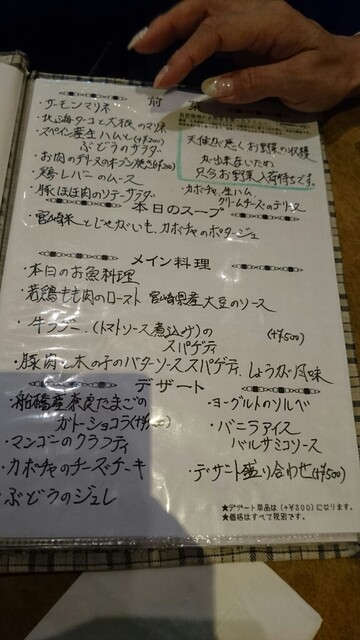 前
・サーモンマリネ
・北海ダコと大根のマリネ
・スペイン産生ハムと(+¥200)
ぶどうのサラダ
・お肉のテリーヌのオーブン焼き(+¥200)
・鶏レバーのムース
・豚ほほ肉のソテーサラダ
天候が悪くお野菜の収穫
が出来ないため
只今お野菜入荷待ちです。
・カボチャ、生ハム
クリームチーズのテリーヌ
本日のスープ
・宮崎米とじゃがいも、カボチャのポタージュ
メイン料理
・本日のお魚料理
・若鶏もも肉のロースト 宮崎県産大豆のソース
・牛ラグー(トマトソース煮込み)の
スパゲティ (+¥500)
・豚肉と木の子のバターソーススパゲティ、しょうが風味
デザート
・船橋産奈良たまごの
ガトーショコラ
・マンゴーのクラフティ
・カボチャのチーズケーキ
・ぶどうのジュレ
・ヨーグルトのソルベ
・バニラアイス
バルサミコソース
・デザート盛り合わせ(+¥500)
★デザート単品は(+¥300)になります。
★価格はすべて税別です。